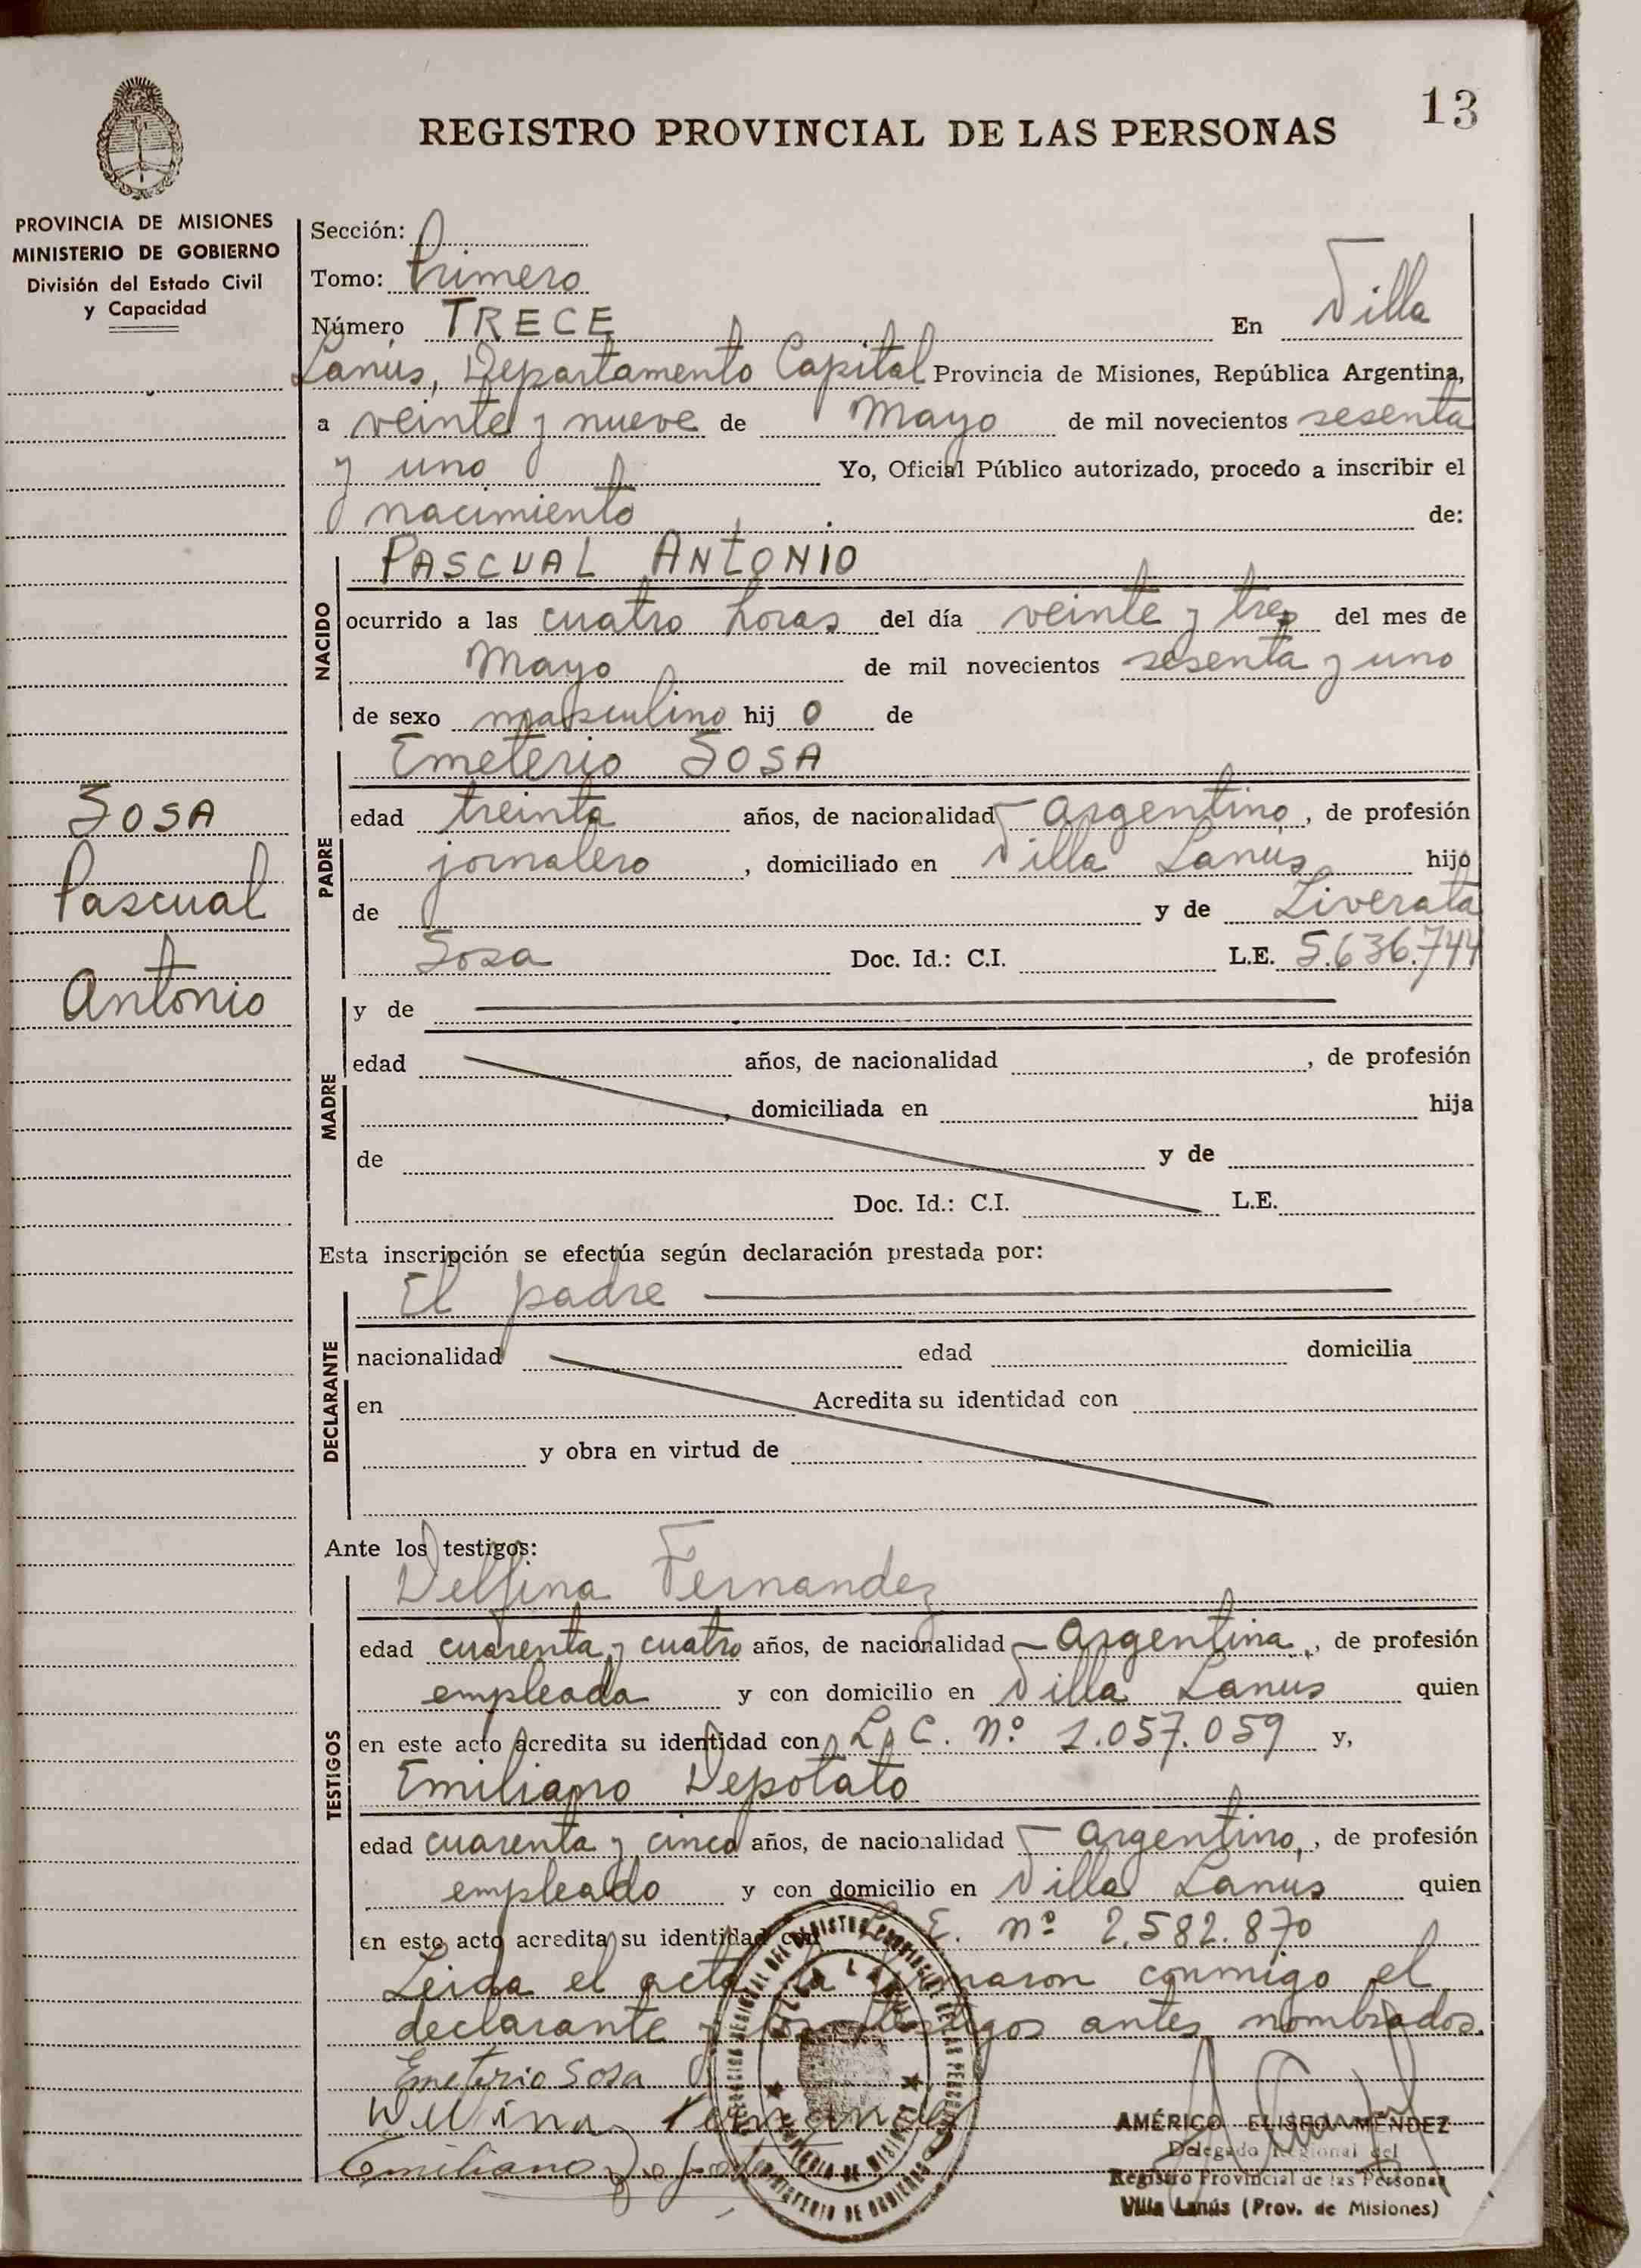 13
REGISTRO PROVINCIAL DE LAS PERSONAS
PROVINCIA DE MISIONES
MINISTERIO DE GOBIERNO
División del Estado Civil
y Capacidad
Sección:
Tomo: Primero
Número TRECE En Villa
Lanús, Departamento Capital Provincia de Misiones, República Argentina,
a veinte y nueve de Mayo de mil novecientos sesenta
y uno Yo, Oficial Público autorizado, procedo a inscribir el
nacimiento de:
NACIDO
PASCUAL ANTONIO
ocurrido a las cuatro horas del día veinte y tres del mes de
Mayo de mil novecientos sesenta y uno
de sexo masculino hij o de
PADRE
Emeterio SOSA
edad treinta años, de nacionalidad argentino, de profesión
jornalero, domiciliado en Villa Lanús hijo
de y de Liverata
Sosa Doc. Id.: C.I. L.E. 5.636.744
SOSA
Pascual
Antonio
MADRE
y de
edad años, de nacionalidad , de profesión
, domiciliada en hija
de y de
Doc. Id.: C.I. L.E.
Esta inscripción se efectúa según declaración prestada por:
DECLARANTE
El padre
nacionalidad edad domicilia
en Acredita su identidad con
y obra en virtud de
Ante los testigos:
TESTIGOS
Delfina Fernandez
edad cuarenta y cuatro años, de nacionalidad Argentina, de profesión
empleada y con domicilio en Villa Lanus quien
en este acto acredita su identidad con L. C. nº 1.057.059 y,
Emiliano Depotato
edad cuarenta y cinco años, de nacionalidad Argentino, de profesión
empleado y con domicilio en Villa Lanus quien
en este acto acredita su identidad con L. E. nº 2.582.870
Leida el acta la firmaron conmigo el
declarante y los testigos antes nombrados.
Emeterio Sosa
Delfina Fernandez
Emiliano
AMÉRICO ELISEO MÉNDEZ
Delegado Regional del
Registro Provincial de las Personas
Villa Lanús (Prov. de Misiones)
VILLA LANUS
PROVINCIA DE MISIONES
MINISTERIO DE GOBIERNO